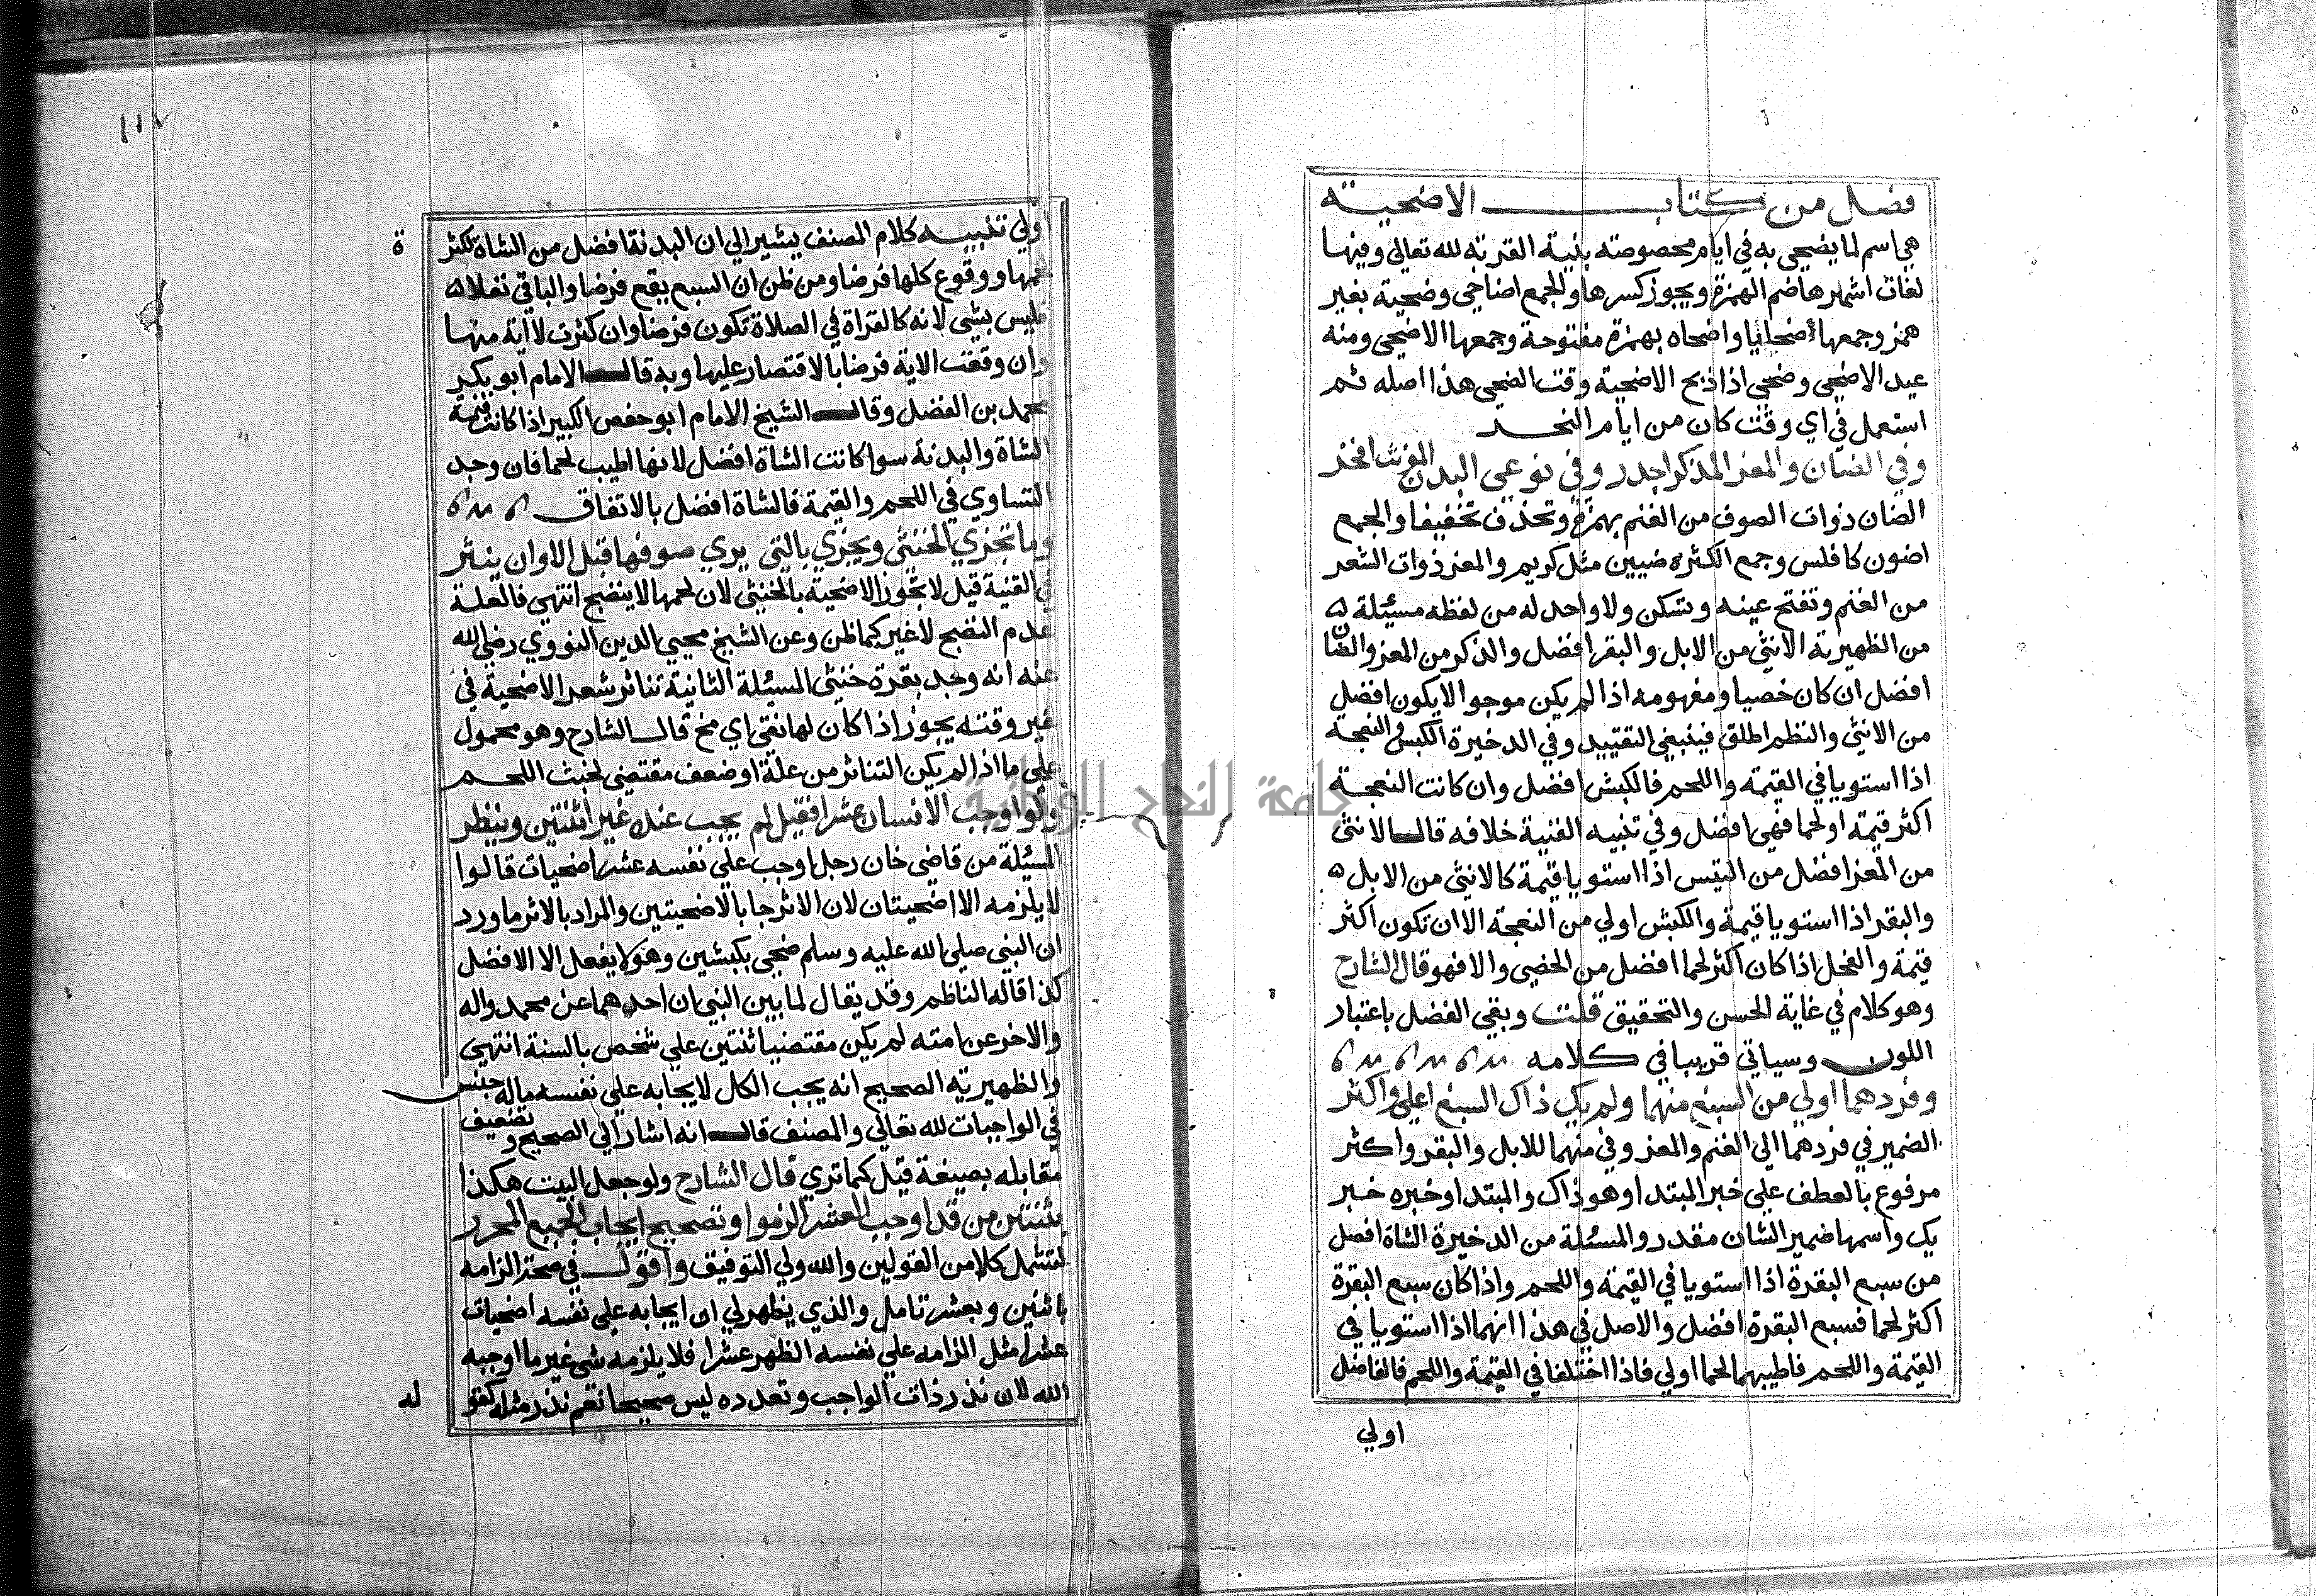 فصل من كتاب الاضحية
هي اسم لما يضحي به في ايام مخصوصة بنية القربة لله تعالي وفيها
لغات اشهرها ضم الهمزة ويجوز كسرها والجمع اضاحي وضحية بغير
همز وجمعها ضحايا واضحاه بهمزة مفتوحة وجمعها الاضحي ومنه
عيد الاضحي وضحي اذا ذبح الاضحية وقت الضحي هذا اصله ثم
استعمل في اي وقت كان من ايام النحر
وفي الضان والمعز المذكر اجدر وفي نوعي البدن المؤنث افخر
الضان ذوات الصوف من الغنم بهمزة وتحذف تخفيفا والجمع
اضون كافلس وجمع الكثرة ضيين مثل كريم والمعز ذوات الشعر
من الغنم وتفتح عينه وتسكن ولا واحد له من لفظه مسيلة
من الظهيرية الانثي من الابل والبقر افضل والذكر من المعز والضان
افضل ان كان خصيا ومفهومه اذا لم يكن موجوا لا يكون افضل
من الانثي والنظم اطلق فينبغي التقييد وفي الدخيرة الكبش والنعجة
اذا استويا في القيمة واللحم فالكبش افضل وان كانت النعجة
اكثر قيمة او لحما فهي افضل وفي تنبيه القنية خلافه قال الانثي
من المعز افضل من التيس اذا استويا قيمة كالانثي من الابل
والبقر اذا استويا قيمة والكبش اولي من النعجة الا ان تكون اكثر
قيمة والفحل اذا كان اكثر لحما افضل من الخصي والا فهو قال الشارح
وهو كلام في غاية الحسن والتحقيق قلت وبقي الفضل باعتبار
اللون وسياتي قريبا في كلامه
وفردهما اولي من السبع منهما ولم يك ذاك السبع اعلي واكثر
الضمير في فردهما الي الغنم والمعز وفي منهما للابل والبقر واكثر
مرفوع بالعطف علي خبر المبتدا وهو ذاك والمبتدا وخبره خبر
يك واسمها ضمير الشان مقدر والمسئلة من الدخيرة الشاة افضل
من سبع البقرة اذا استويا في القيمة واللحم واذا كان سبع البقرة
اكثر لحما فسبع البقرة افضل والاصل في هذا انهما اذا استويا في
القيمة واللحم فاطيبهما لحما اولي فاذا اختلفا في القيمة واللحم فالفاضل
اولي
١١٧
اولي تنبيه كلام المصنف يشير الي ان البدنة افضل من الشاة لكثرة
لحمها ووقوع كلها فرضا ومن ظن ان السبع يقع فرضا والباقي نفلا
فليس بشي لانه كالقراة في الصلاة تكون فرضا وان كثرت لا اية منها
وان وقعت الاية فرضا بالاقتصار عليها وبه قال الامام ابو بكر
محمد بن الفضل وقال الشيخ الامام ابو حفص الكبير اذا كانت قيمة
الشاة والبدنة سوا كانت الشاة افضل لانها اطيب لحما فان وجد
التساوي في اللحم والقيمة فالشاة افضل بالاتفاق
وما تجزي الخنثي ويجزي بالتي يري صوفها قبل الاوان ينثر
في القنية قيل لا تجوز الاضحية بالخنثي لان لحمها لا ينضج انتهي فالعلة
عدم النضج لا غير كما ظن وعن الشيخ محيي الدين النووي رضي الله
عنه انه وجد بقرة خنثي المسئلة الثانية تناثر شعر الاضحية في
غير وقته يجوز اذا كان لها نقي اي مخ قال الشارح وهو محمول
علي ما اذا لم يكن التناثر من علة او ضعف مقتضي لخبث اللحم
ولو اوجب الانسان عشرا فقيل لم يجب عنده غير اثنتين وينظر
المسئلة من قاضي خان رجل اوجب علي نفسه عشر اضحيات قالوا
لا يلزمه الا اضحيتان لان الاثر جا بالاضحيتين والمراد بالاثر ما ورد
ان النبي صلي الله عليه وسلم ضحي بكبشين وهو لا يفعل الا الافضل
كذا قاله الناظم وقد يقال لما بين النبي ان احدهما عن محمد واله
والاخر عن امته لم يكن مقتضيا ثنتين علي شخص بالسنة انتهي
والظهيرية الصحيح انه يجب الكل لايجابه علي نفسه ماله جنس
في الواجبات لله تعالي والمصنف قال انه اشار الي الصحيح وتضعيف
مقابله بصيغة قيل كما تري قال الشارح ولو جعل البيت هكذا
بثنتين من قد اوجب العشر الزموا وتصحيح ايجاب الجميع المحرر
لتشمل كلا من القولين والله ولي التوفيق واقول في صحة الزامه
باثنين وبعشر تامل والذي يظهر لي ان ايجابه علي نفسه اضحيات
عشرا مثل الزامه علي نفسه الظهر عشرا فلا يلزمه شي غير ما اوجبه
الله لان نذر ذات الواجب وتعدده ليس صحيحا نعم نذر مثله كقو
له
جامعة النجاح الوطنية